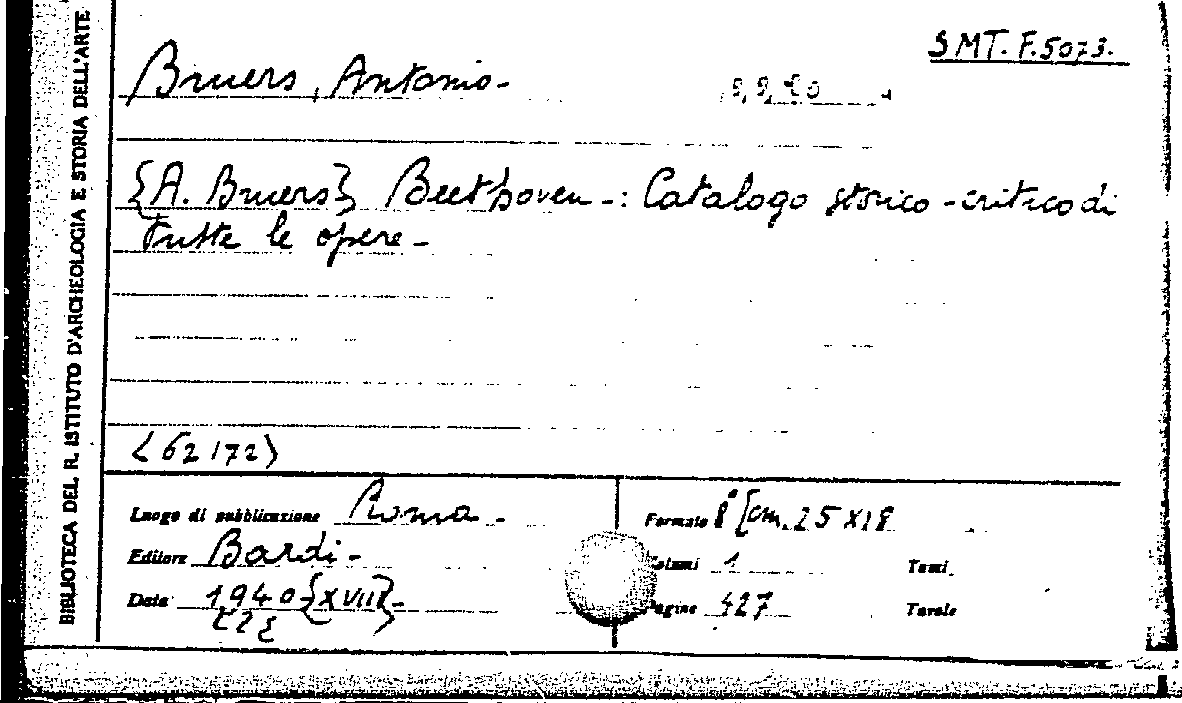 BIBLIOTECA DEL R. ISTITUTO D'ARCHEOLOGIA E STORIA DELL'ARTE
SMT. F. 5073.
Bruers, Antonio -
{A. Bruers} Beethoven -: Catalogo storico-critico di
tutte le opere -
<62172>
Luogo di pubblicazione Roma -
Formato 8° [cm. 25 x 18
Editore Bardi -
Volumi 1 Tomi
Data 1940 {XVIII} -
Pagine 427 Tavole